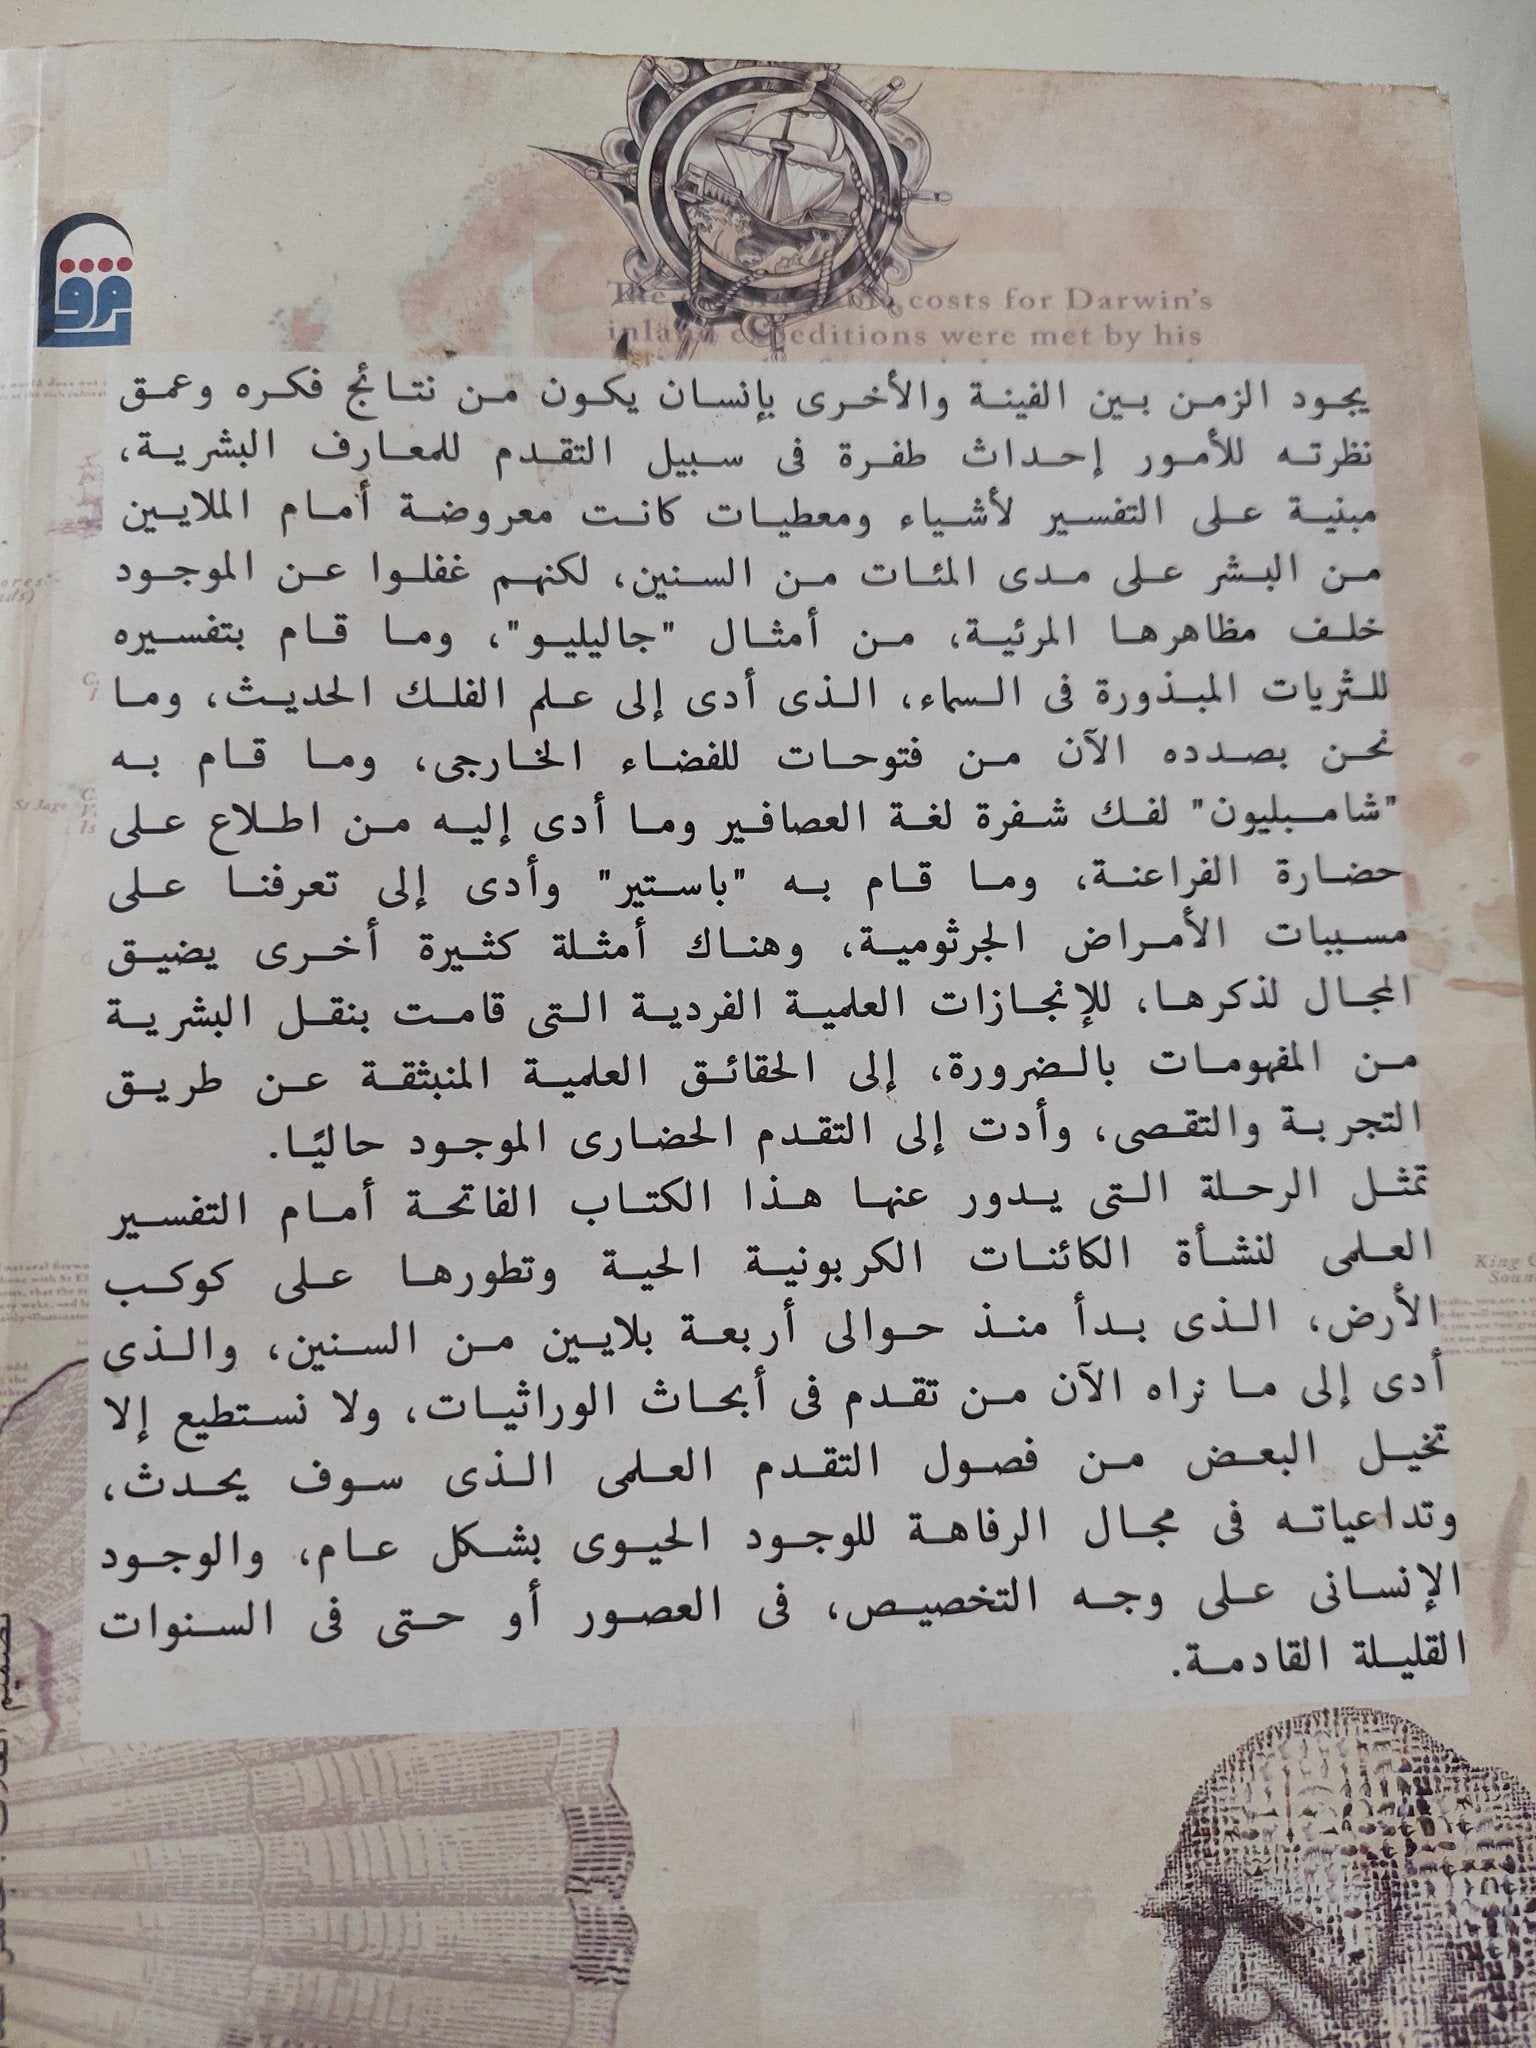 The costs for Darwin's
inland expeditions were met by his
يجود الزمن بين الفينة والأخرى بإنسان يكون من نتائج فكره وعمق
نظرته للأمور إحداث طفرة فى سبيل التقدم للمعارف البشرية،
مبنية على التفسير لأشياء ومعطيات كانت معروضة أمام الملايين
من البشر على مدى المئات من السنين، لكنهم غفلوا عن الموجود
خلف مظاهرها المرئية، من أمثال "جاليليو"، وما قام بتفسيره
للثريات المبذورة فى السماء، الذى أدى إلى علم الفلك الحديث، وما
نحن بصدده الآن من فتوحات للفضاء الخارجى، وما قام به
"شامبليون" لفك شفرة لغة العصافير وما أدى إليه من اطلاع على
حضارة الفراعنة، وما قام به "باستير" وأدى إلى تعرفنا على
مسببات الأمراض الجرثومية، وهناك أمثلة كثيرة أخرى يضيق
المجال لذكرها، للإنجازات العلمية الفردية التى قامت بنقل البشرية
من المفهومات بالضرورة، إلى الحقائق العلمية المنبثقة عن طريق
التجربة والتقصى، وأدت إلى التقدم الحضارى الموجود حاليًا.
تمثل الرحلة التى يدور عنها هذا الكتاب الفاتحة أمام التفسير
العلمى لنشأة الكائنات الكربونية الحية وتطورها على كوكب
الأرض، الذى بدأ منذ حوالى أربعة بلايين من السنين، والذى
أدى إلى ما نراه الآن من تقدم فى أبحاث الوراثيات، ولا نستطيع إلا
تخيل البعض من فصول التقدم العلمى الذى سوف يحدث،
وتداعياته فى مجال الرفاهة للوجود الحيوى بشكل عام، والوجود
الإنسانى على وجه التخصيص، فى العصور أو حتى فى السنوات
القليلة القادمة.